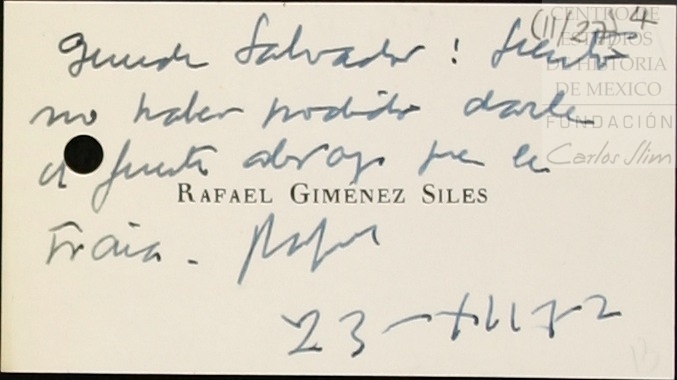 (11/27) 4
CENTRO DE
ESTUDIOS
DE HISTORIA
DE MEXICO
FUNDACIÓN
Carlos Slim
Querido Salvador: Siento
no haber podido darle
el fuerte abrazo que le
RAFAEL GIMÉNEZ SILES
traía. Rafael
23-XII-72